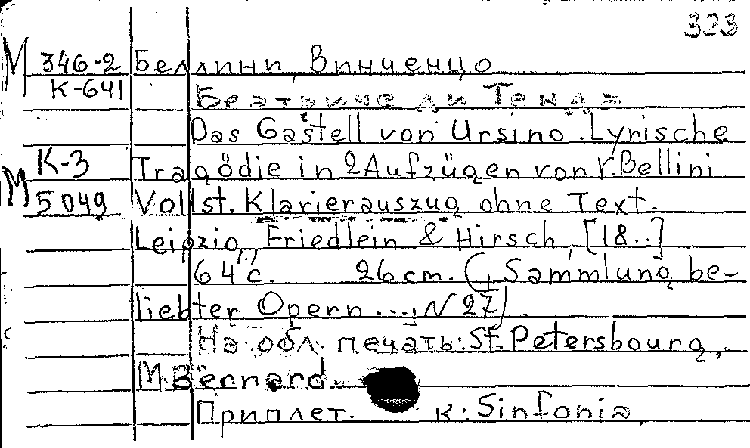 323
М 346-2 Беллини, Винченцо
К-641 Беатриче ди Тенда
Das Castell von Ursino. Lyrische
М К-3 Tragödie in 2 Aufzügen von V. Bellini
5049 Vollst. Klavierauszug ohne Text.
Leipzig, Friedlein & Hirsch, [18..]
64 с. 26 cm. (Sammlung be-
liebter Opern ...; N 27)
На обл. печать: St. Petersbourg,
M. Bernard.
Приплет. к: Sinfonia